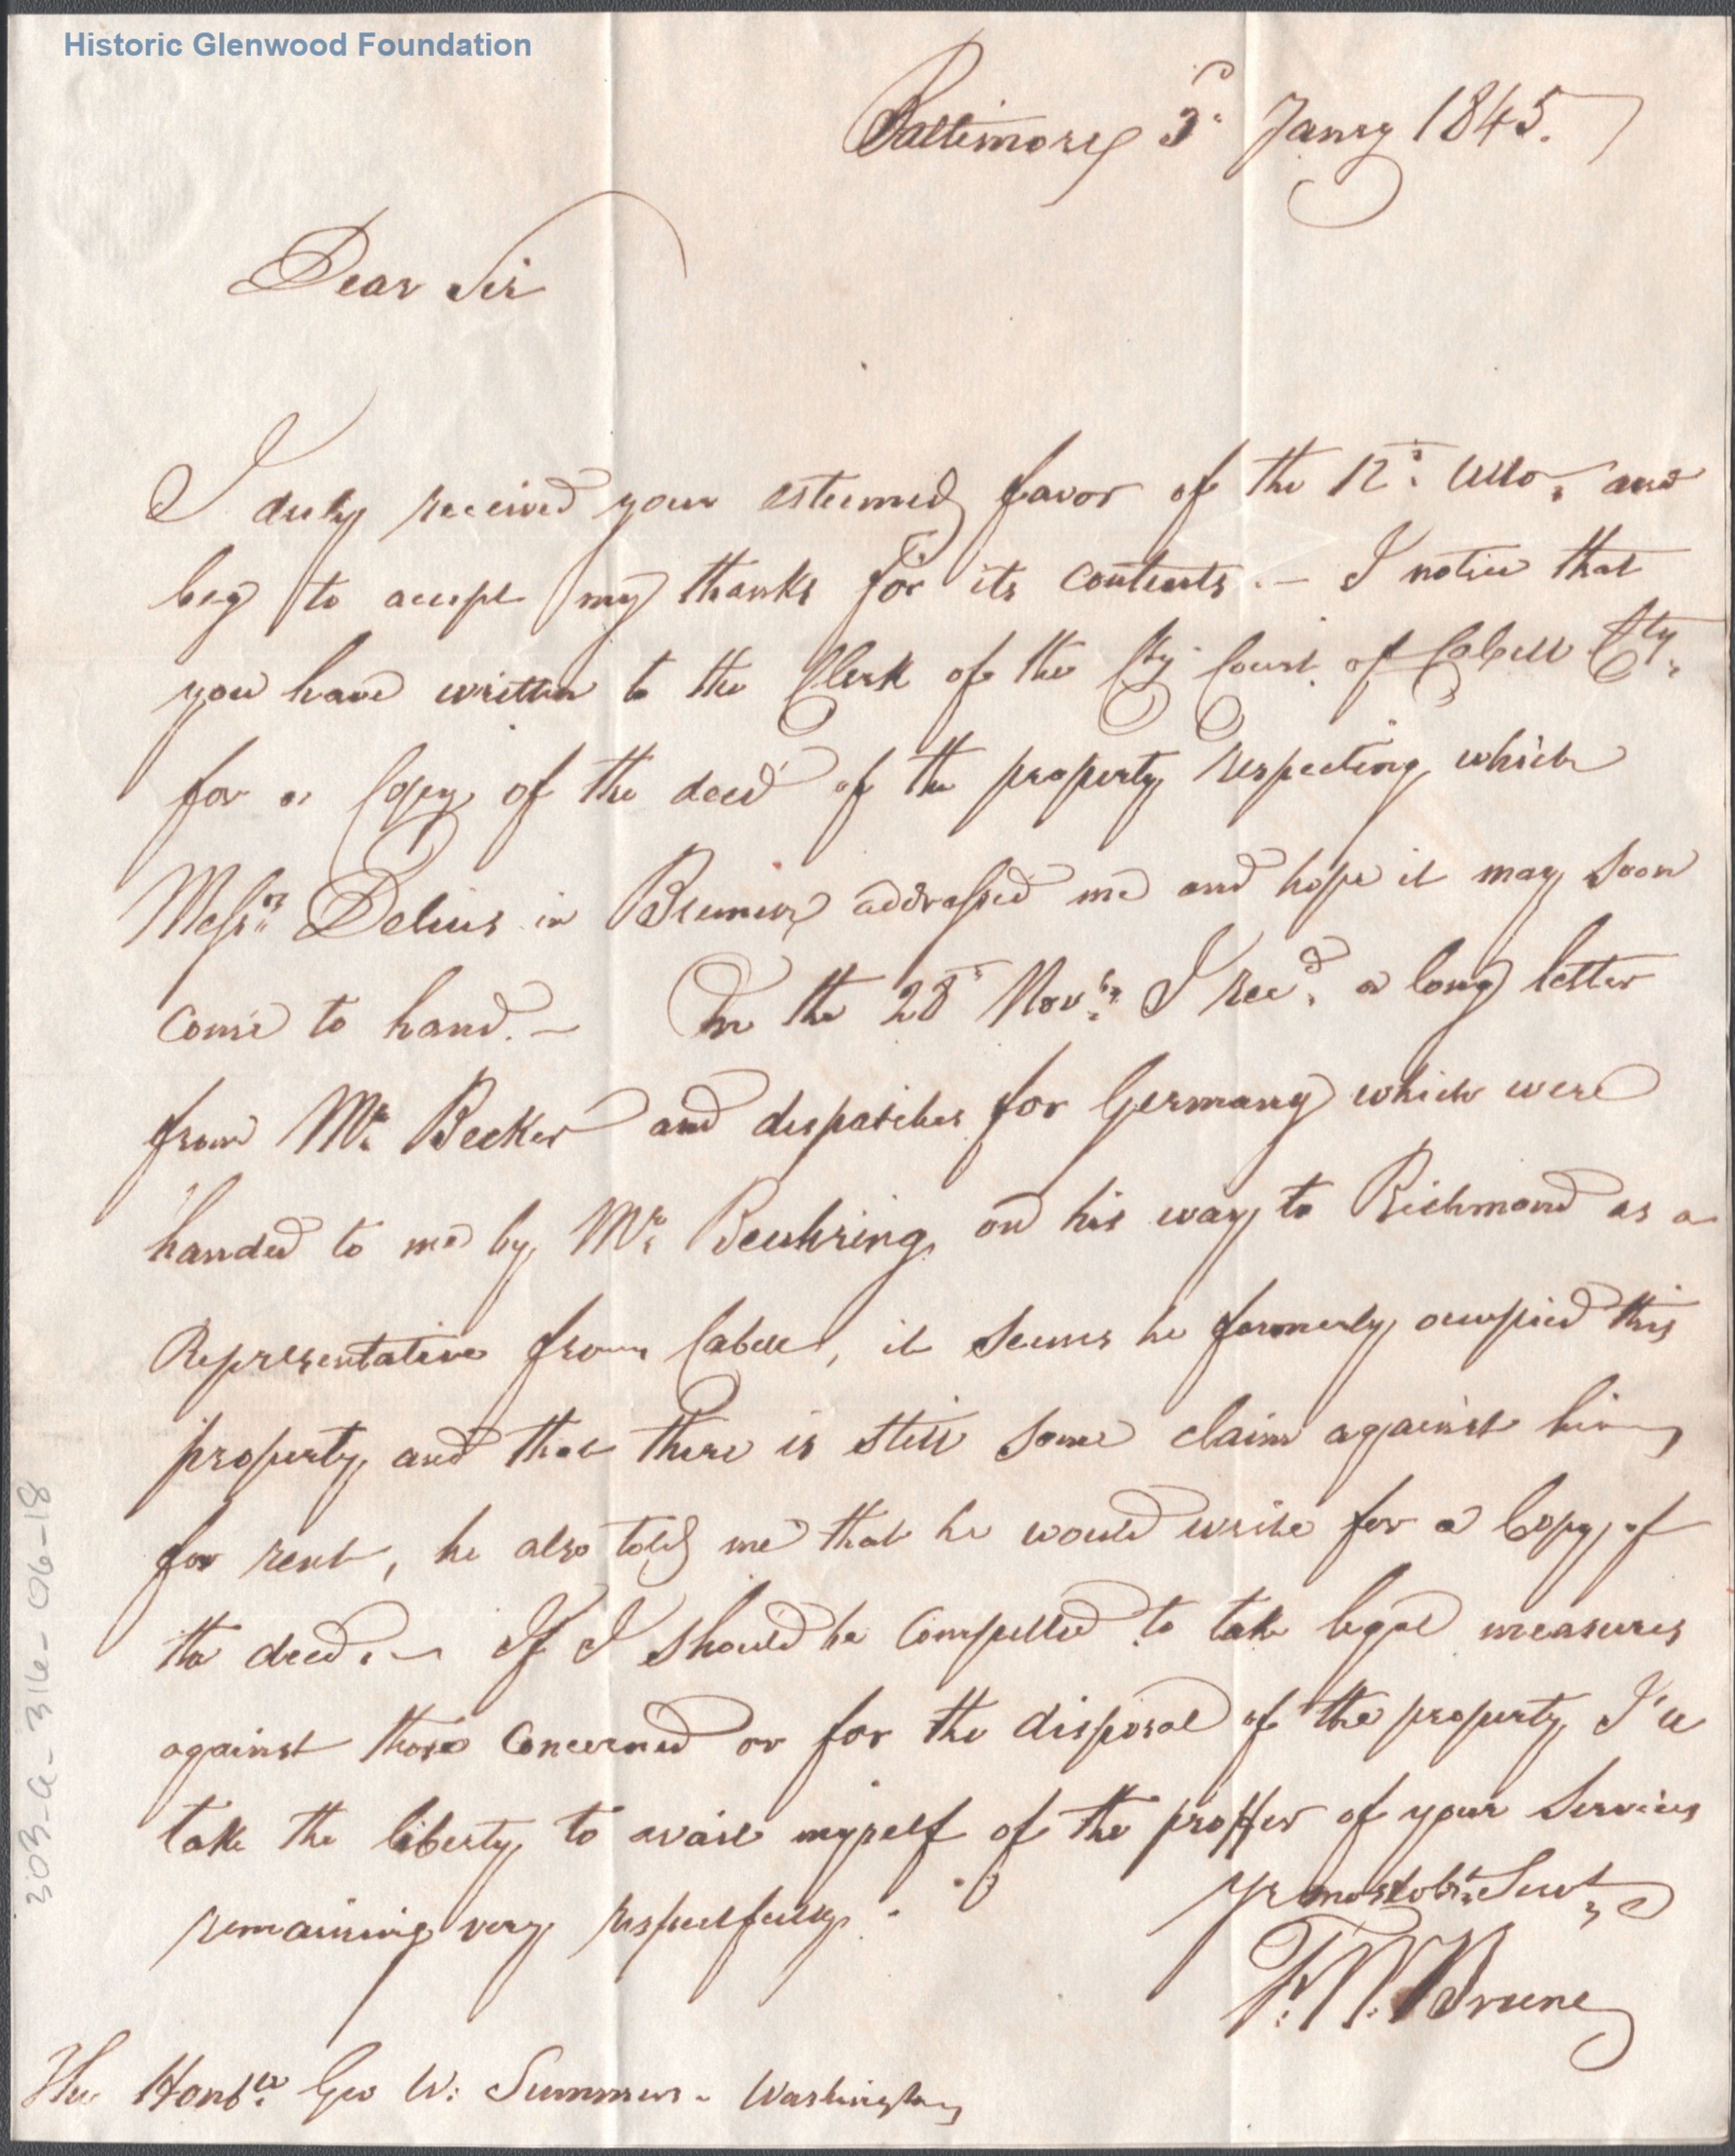 Historic Glenwood Foundation
Baltimore 3d Janry 1845.
Dear Sir
I duly received your esteemed favor of the 12th Ulto. and
beg to accept my thanks for its contents. – I notice that
you have written to the Clerk of the Cty Court of Cabell Cty.
for a Copy of the deed of the property respecting which
Messrs Delius in Bremen addressed me and hope it may soon
come to hand. – On the 28th Novbr. I recd. a long letter
from Mr. Becker and dispatches for Germany which were
handed to me by Mr. Beuhring on his way to Richmond as a
Representative from Cabell, it seems he formerly occupied this
property and that there is still some claim against him
for rent, he also told me that he would write for a Copy of
the deed. – If I should be compelled to take legal measures
against those Concerned or for the disposal of the property I'll
take the liberty to avail myself of the proffer of your Services
remaining very respectfully.
yr most obt. Servt
F. W. Brune
The Honble. Geo W: Summers – Washington
303-a-316-06-18